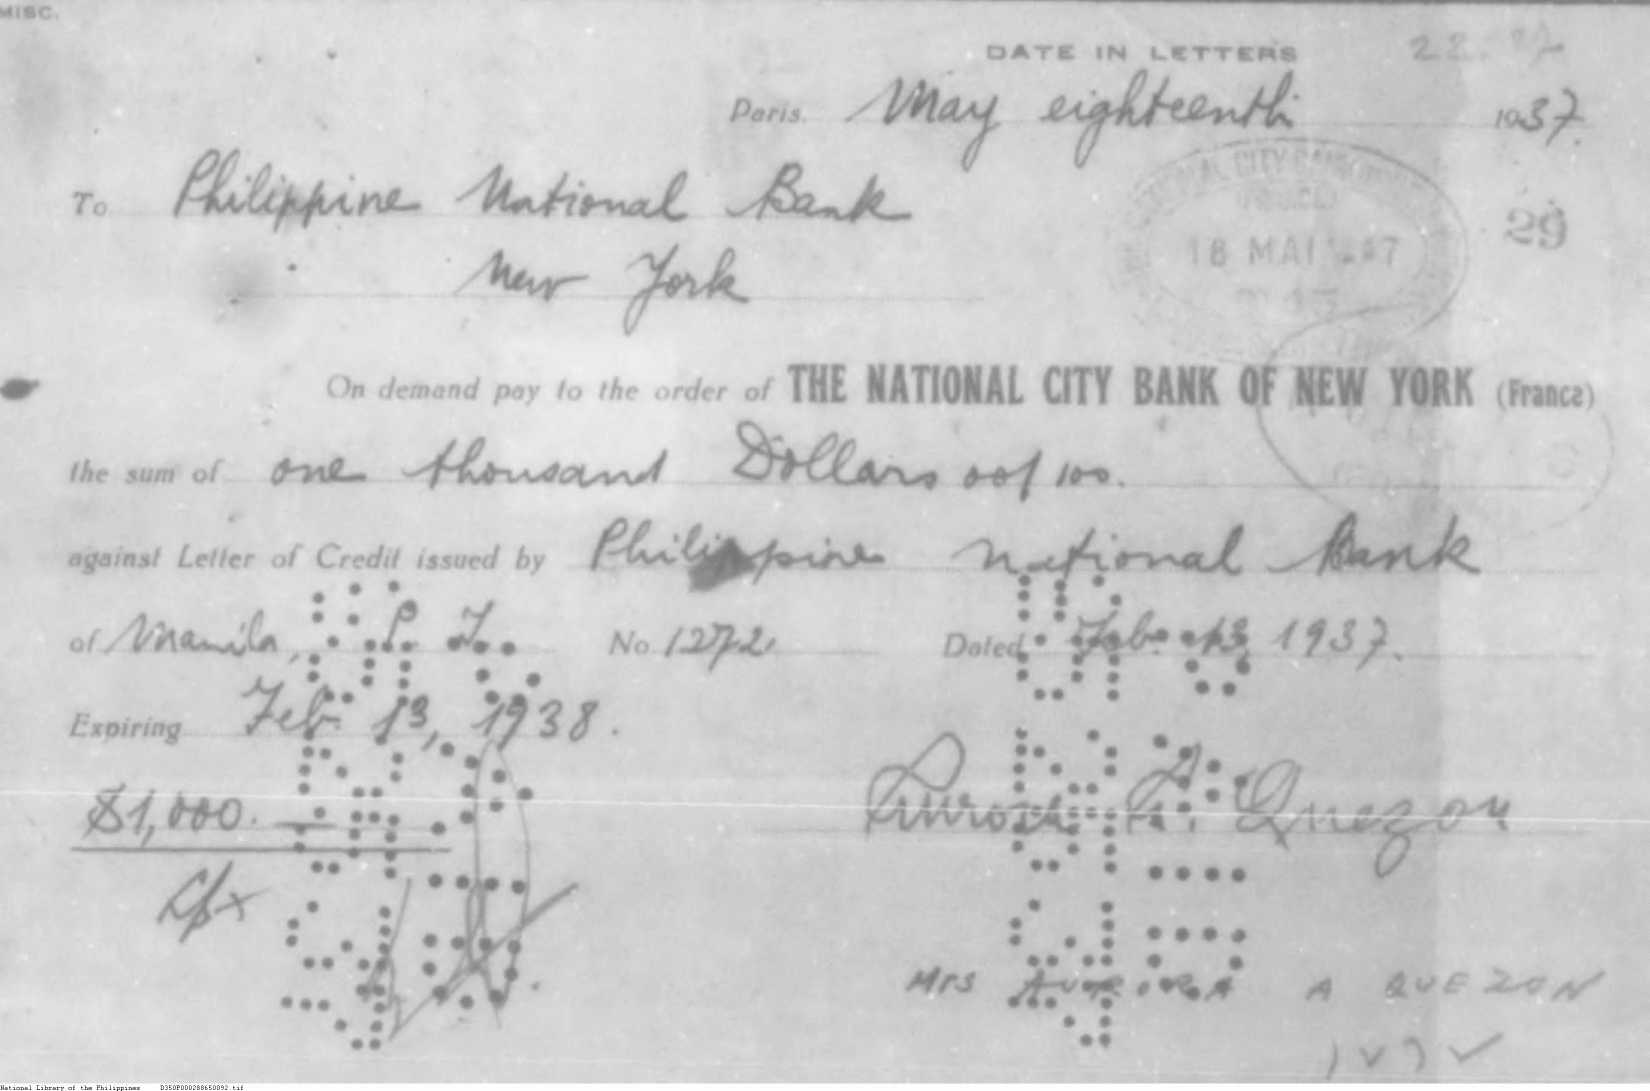 MISC.
DATE IN LETTERS
Paris. May eighteenth 1937.
To Philippine National Bank
29
18 MAI
New York
On demand pay to the order of THE NATIONAL CITY BANK OF NEW YORK (France)
the sum of one thousand Dollars 00/100.
against Letter of Credit issued by Philippine National Bank
of Manila, P. I. No. 1272 Dated Feb. 13, 1937.
Expiring Feb. 13, 1938.
$1,000.
Aurora A. Quezon
Mrs AURORA A QUEZON
National Library of the Philippines D350P000288650092.tif